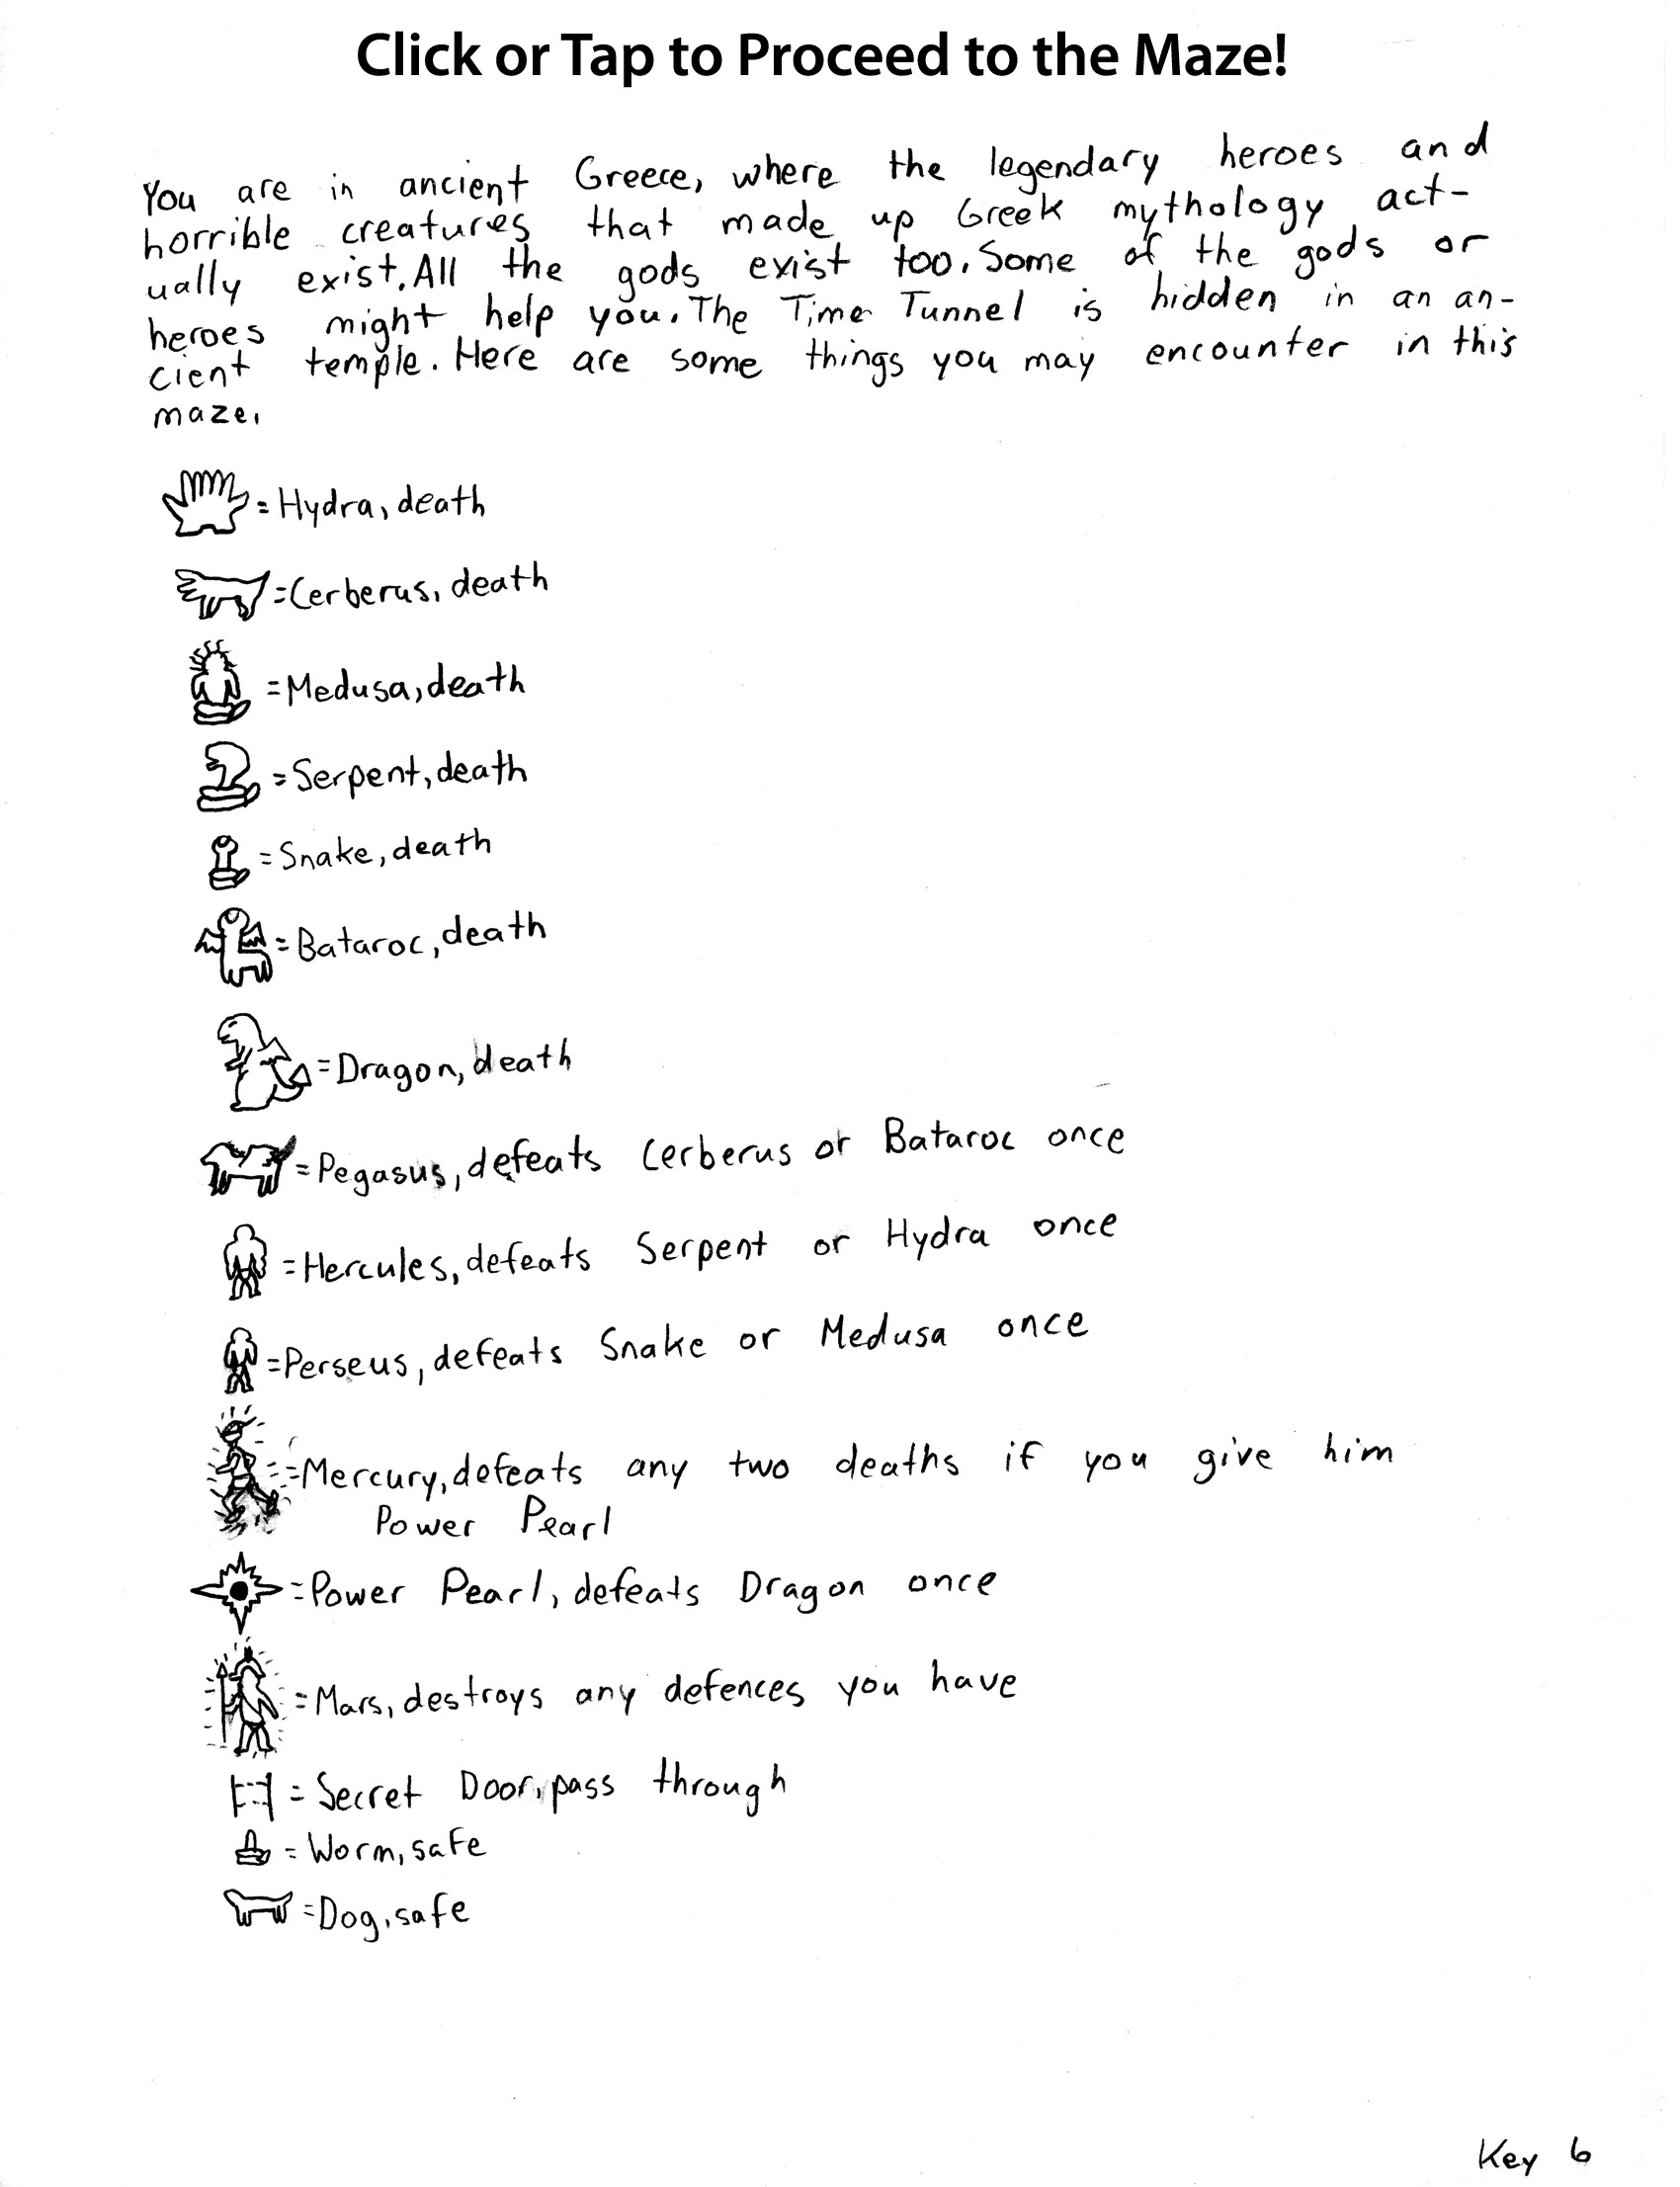 Click or Tap to Proceed to the Maze!
You are in ancient Greece, where the legendary heroes and
horrible creatures that made up Greek mythology act-
ually exist. All the gods exist too. Some of the gods or
heroes might help you. The Time Tunnel is hidden in an an-
cient temple. Here are some things you may encounter in this
maze.
= Hydra, death
= Cerberus, death
= Medusa, death
= Serpent, death
= Snake, death
= Bataroc, death
= Dragon, death
= Pegasus, defeats Cerberus or Bataroc once
= Hercules, defeats Serpent or Hydra once
= Perseus, defeats Snake or Medusa once
= Mercury, defeats any two deaths if you give him
Power Pearl
= Power Pearl, defeats Dragon once
= Mars, destroys any defences you have
= Secret Door, pass through
= Worm, safe
= Dog, safe
Key 6